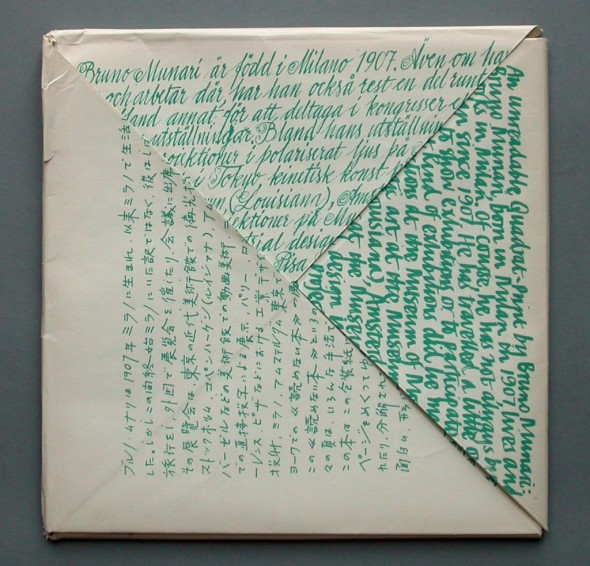 Bruno Munari är född i Milano 1907. Även om han
och arbetar där, har han också rest en del runt
land annat för att deltaga i kongresser
utställningar. Bland hans utställnin
ektioner i polariserat ljus på
i Tokyo kinetisk konst p
(Louisiana), Ams
ektioner på M
ial design
Pisa
An unreadable Quadrat-Print by Bruno Munari:
Bruno Munari, born in Milan in 1907, lives and
works in Milan of course he has not always be
en since 1907. He has travelled a little ar
to show exhibitions or to participate
kind of exhibitions did he
tions at the Museum of Mo
tic art at the Museum
useum), Amsterd
at the Museu
design in
ブルーノ・ムナリは1907年ミラノに生まれ、以来ミラノで生活
した。しかしこの間終始ミラノにいた訳ではなく、彼はし
旅行をし、外国で展覧会を催したり、会議に出席
その展覧会は、東京の近代美術館での偏光投
ストックホルム、コペンハーゲン(ルイジアナ)、ア
バーゼルなどの美術館での動画美術
での直接投写による展示、パリー、ロ
ーレンス、ピザなどにおける工業デザ
投射、ミラノ、アムステルダム、東京で
ヨークでの≪読めない本≫
この≪読めない本≫というの
々の頁は、いろんな手法で
この本はこの包装紙
ページをめくって
れたり、分解さ
面白い、